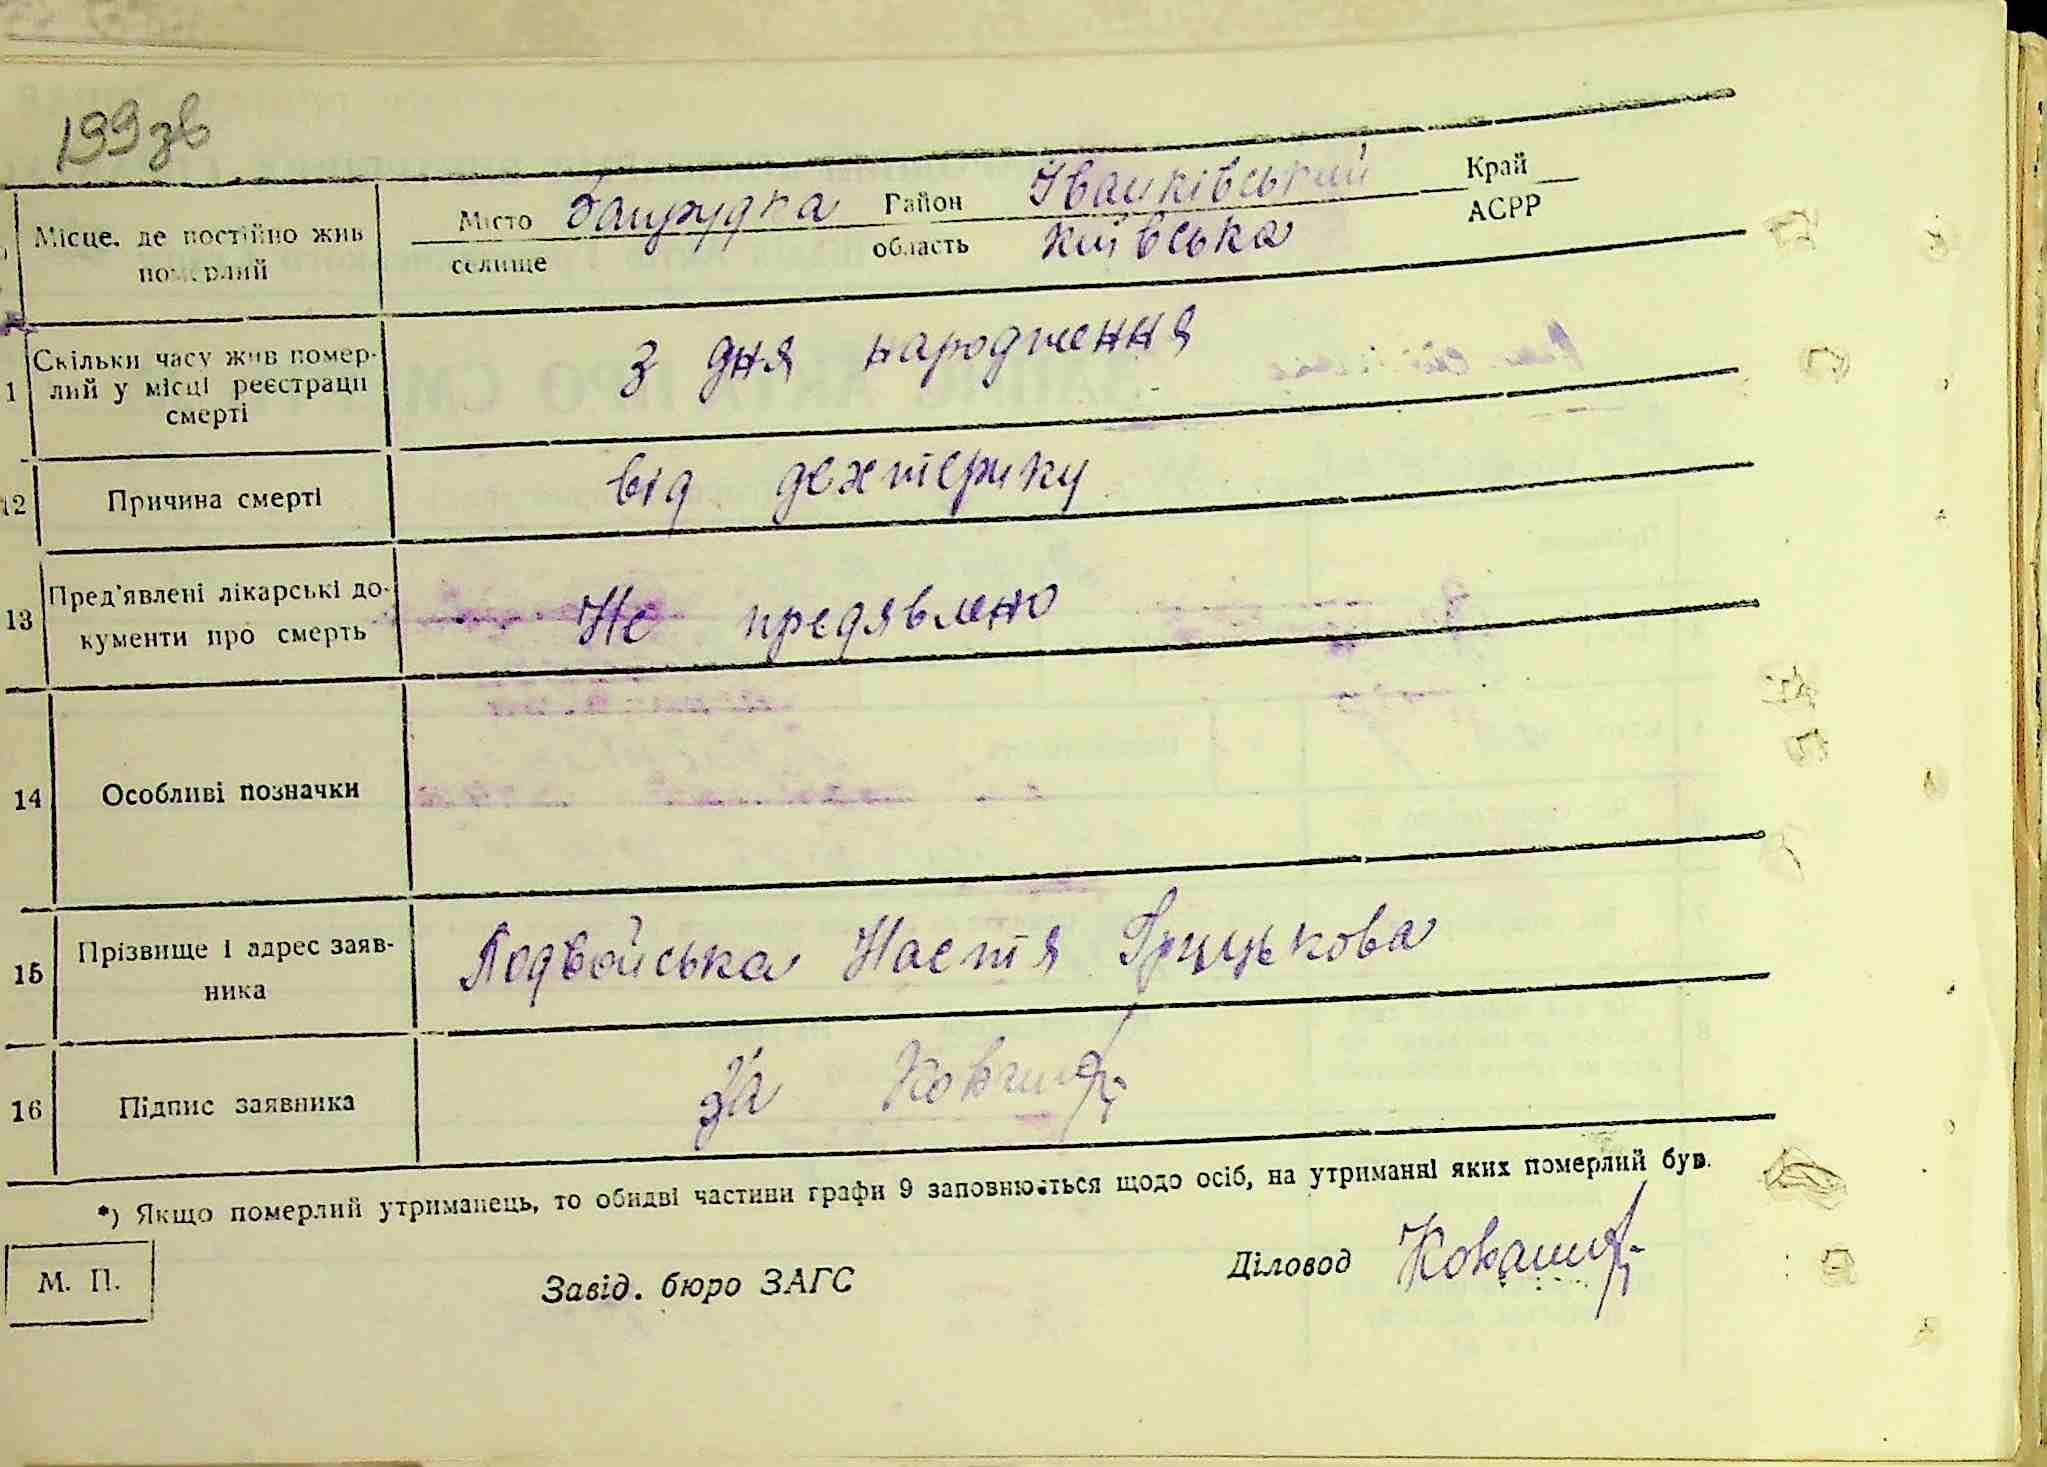 199зв
Місце, де постійно жив померлий
Місто Район Іванківський Край
селище область київська АСРР
1 Скільки часу жив помер-
лий у місці реєстрації
смерті
з дня народження
12 Причина смерті від дехтерику
13 Пред'явлені лікарські до-
кументи про смерть
Не предявлено
14 Особливі позначки
15 Прізвище і адрес заяв-
ника
Подвойська Настя Грицькова
16 Підпис заявника
За
*) Якщо померлий утриманець, то обидві частини графи 9 заповнюються щодо осіб, на утриманні яких померлий був.
М. П. Завід. бюро ЗАГС Діловод